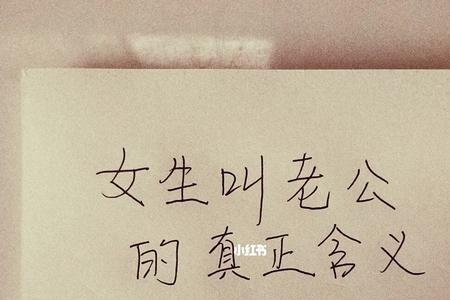 女生叫老公
小红书
的真正含义